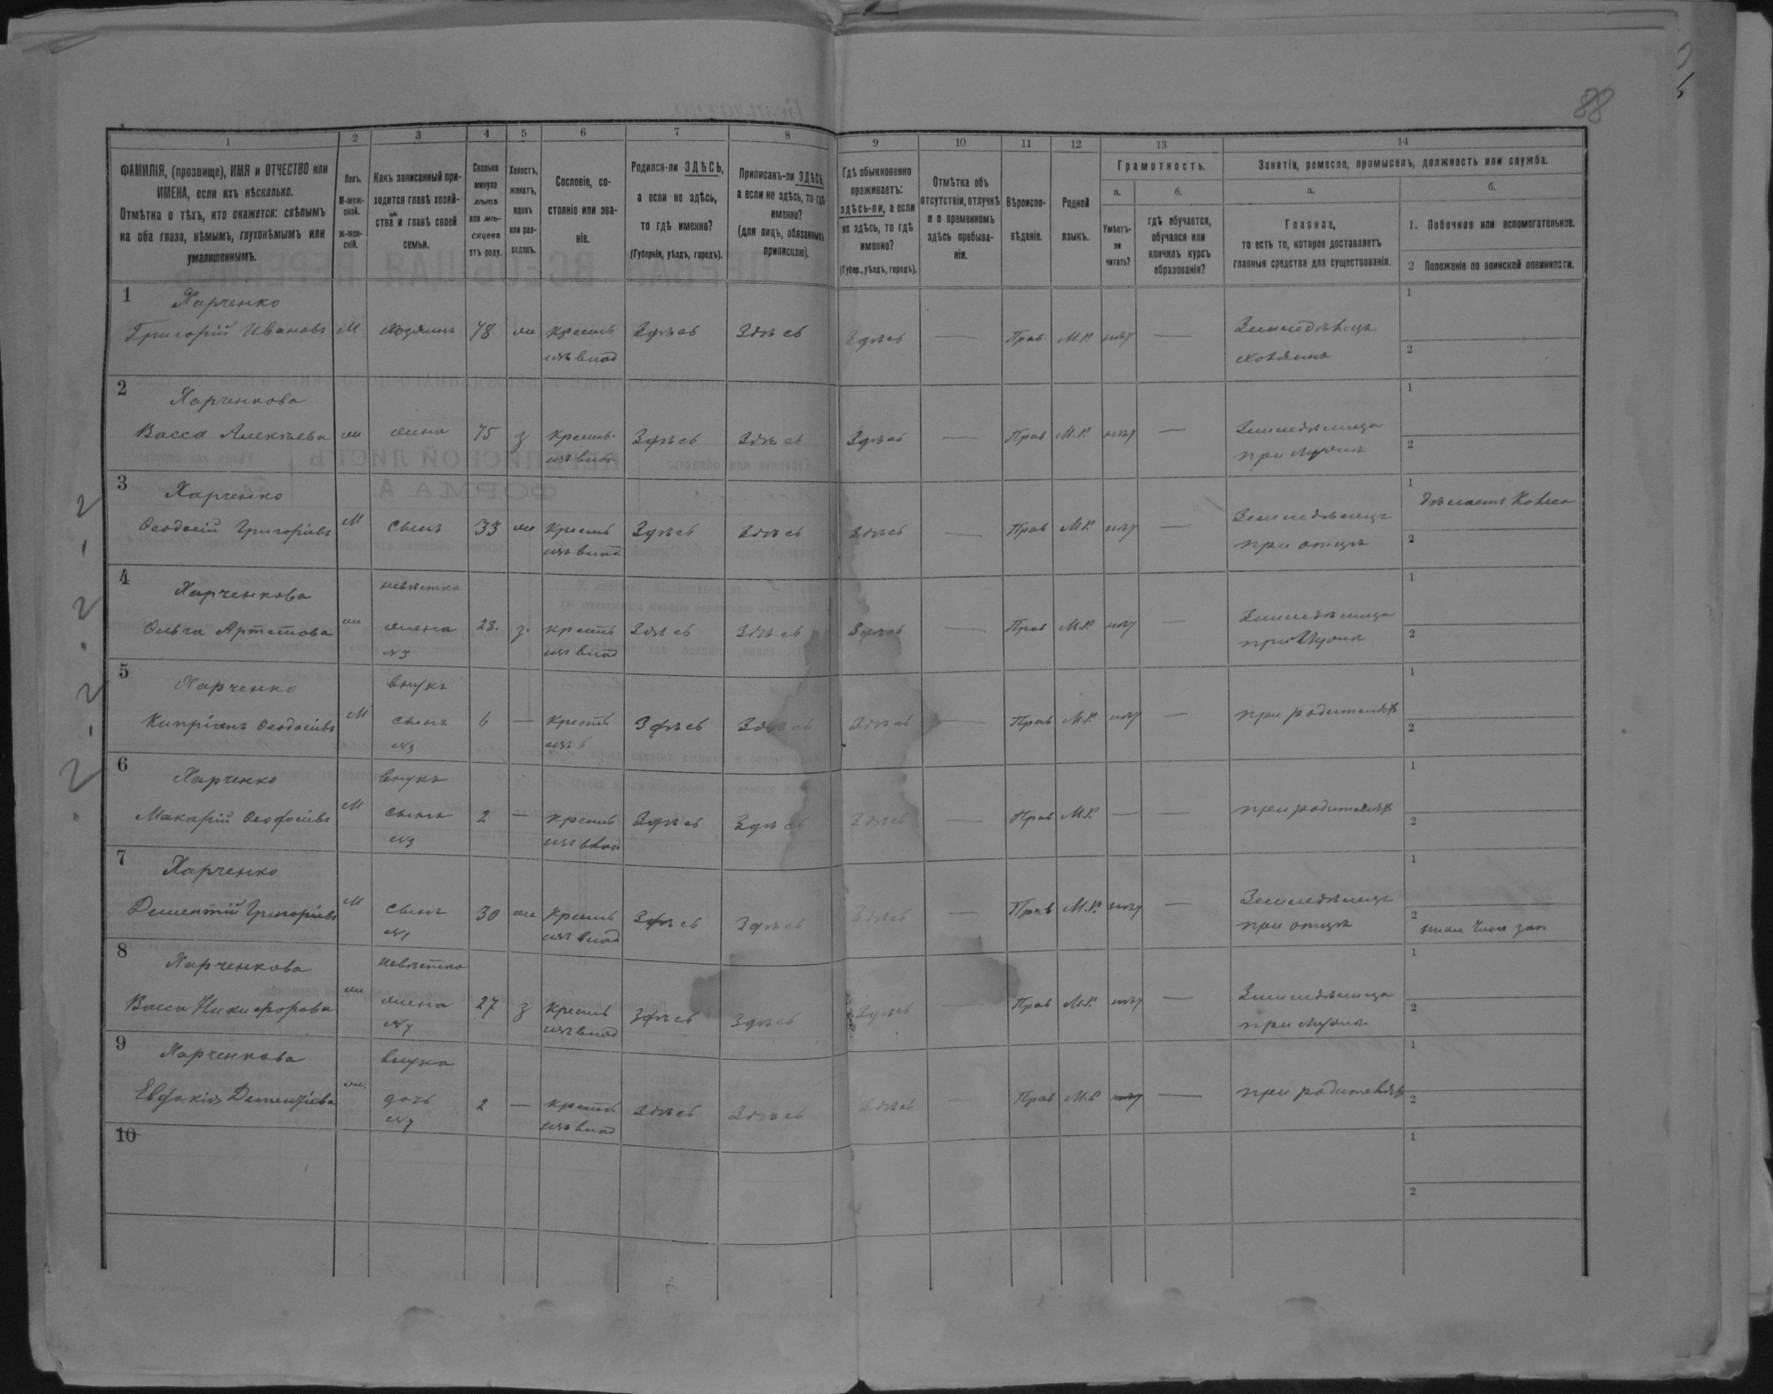 88
1 2 3 4 5 6 7 8 9 10 11 12 13 14
ФАМИЛІЯ, (прозвище), ИМЯ и ОТЧЕСТВО или
ИМЕНА, если ихъ нѣсколько.
Отмѣтка о тѣхъ, кто окажется: слѣпымъ
на оба глаза, нѣмымъ, глухонѣмымъ или
умалишеннымъ.
Полъ.
М-муж-
ской.
Ж-жен-
скій.
Какъ записанный при-
ходится главѣ хозяй-
ства и главѣ своей
семьи.
Сколько
минуло
лѣтъ
или мѣ-
сяцевъ
отъ роду.
Холостъ,
женатъ,
вдовъ
или раз-
веденъ.
Сословіе, со-
стояніе или зва-
ніе.
Родился-ли ЗДѢСЬ,
а если не здѣсь,
то гдѣ именно?
(Губернія, уѣздъ, городъ).
Приписанъ-ли ЗДѢСЬ,
а если не здѣсь, то-гдѣ
именно?
(для лицъ, обязанныхъ
припискою).
Гдѣ обыкновенно
проживаетъ:
здѣсь-ли, а если
не здѣсь, то гдѣ
именно?
(Губер., уѣздъ, городъ).
Отмѣтка объ
отсутствіи, отлучкѣ
и о временномъ
здѣсь пребыва-
ніи.
Вѣроиспо-
вѣданіе.
Родной
языкъ.
Грамотность.
а.
Умѣетъ-
ли
читать?
б.
гдѣ обучается,
обучался или
кончилъ курсъ
образованія?
Занятіе, ремесло, промыселъ, должность или служба.
а.
Главное,
то есть то, которое доставляетъ
главныя средства для существованія.
б.
1. Побочное или вспомогательное.
2 Положеніе по воинской повинности.
1 Харченко
Григорій Ивановъ М хозяинъ 78 ж Крестъ Здѣсь Здѣсь Здѣсь — Прав. М.Р. нѣт — Земледѣлецъ 1
изъ влад хозяинъ 2
2 Харченкова
Васса Алексѣева ж жена 75 з Крестъ. Здѣсь Здѣсь Здѣсь — Прав М.Р. нѣт — Земледѣлица 1
изъ влад при мужѣ 2
3 Харченко
Ѳеодосій Григоріевъ М сынъ 33 ж Крестъ Здѣсь Здѣсь Здѣсь — Прав М.Р. нѣт — Земледѣлецъ 1 дѣлаетъ Колеса
изъ влад при отцѣ 2
4 Харченкова невѣстка
Ольга Артемова ж жена 28. з. Крестъ Здѣсь Здѣсь Здѣсь — Прав М.Р. нѣт — Земледѣлица 1
№3 изъ влад при Мужѣ 2
5 Харченко внукъ
Кипріянъ Ѳеодосіевъ М сынъ 6 — Крестъ Здѣсь Здѣсь Здѣсь — Прав М.Р. нѣт — при родителяхъ 1
№3 изъ в 2
6 Харченко внукъ
Макарій Ѳеодосіевъ М сынъ 2 — Крестъ Здѣсь Здѣсь Здѣсь — Прав М.Р. — — при родителяхъ 1
№3 изъ влад 2
7 Харченко
Дементій Григоріевъ М сынъ 30 ж Крестъ Здѣсь Здѣсь Здѣсь — Прав М.Р. нѣт — Земледѣлецъ 1
№1 изъ влад при отцѣ 2 зап
8 Харченкова невѣстка
Васса Никифорова ж жена 27 з Крестъ Здѣсь Здѣсь Здѣсь — Прав М.Р. нѣт — Земледѣлица 1
№7 изъ влад при мужѣ 2
9 Харченкова внука
Евдокія Дементіева ж дочь 2 — Крестъ Здѣсь Здѣсь Здѣсь — Прав М.Р. нѣт — при родителяхъ 1
№7 изъ влад 2
10 1
2
2-2-2-2